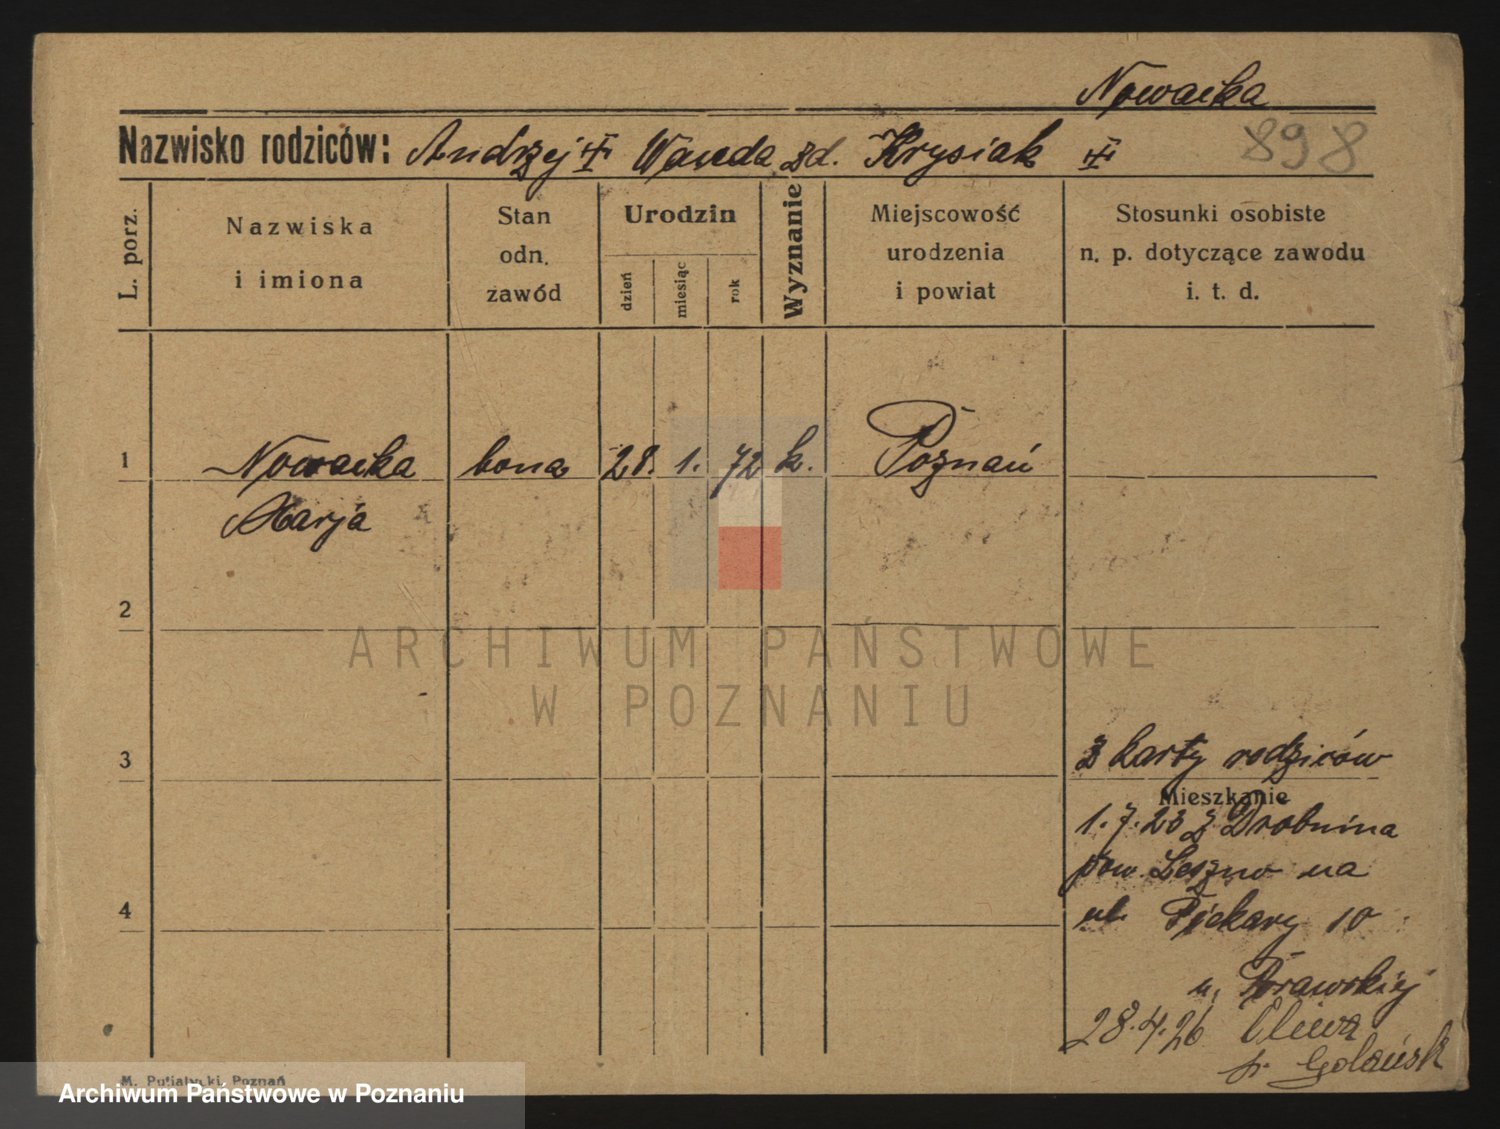 Nowacka
Nazwisko rodziców: Andrzej Wanda zd. Krysiak
898
L. porz.
Nazwiska i imiona
Stan odn. zawód
Urodzin
dzień
miesiąc
rok
Wyznanie
Miejscowość urodzenia i powiat
Stosunki osobiste n. p. dotyczące zawodu i. t. d.
1 Nowacka bona 28. 1. 72 k. Poznań
Marja
2
ARCHIWUM PAŃSTWOWE
W POZNANIU
3
z karty rodziców
Mieszkanie
1.7.23 z Drobnina
pow. Leszno na
4
ul. Piekary 10
u.
28.4.26 Oliwa
p. Gdańsk
M. Putiatycki, Poznań
Archiwum Państwowe w Poznaniu